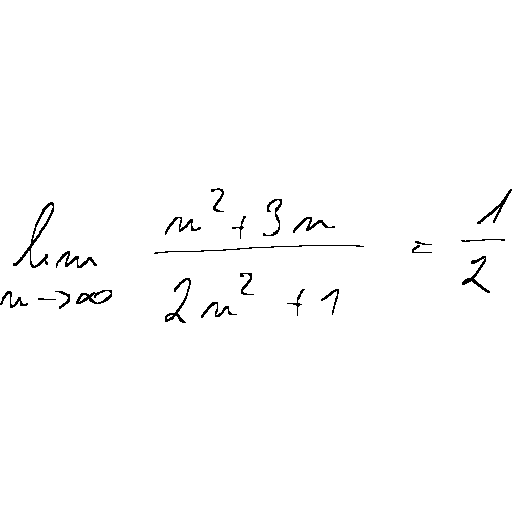 lim_{n→∞} \frac{n^2+3n}{2n^2+1} = \frac{1}{2}